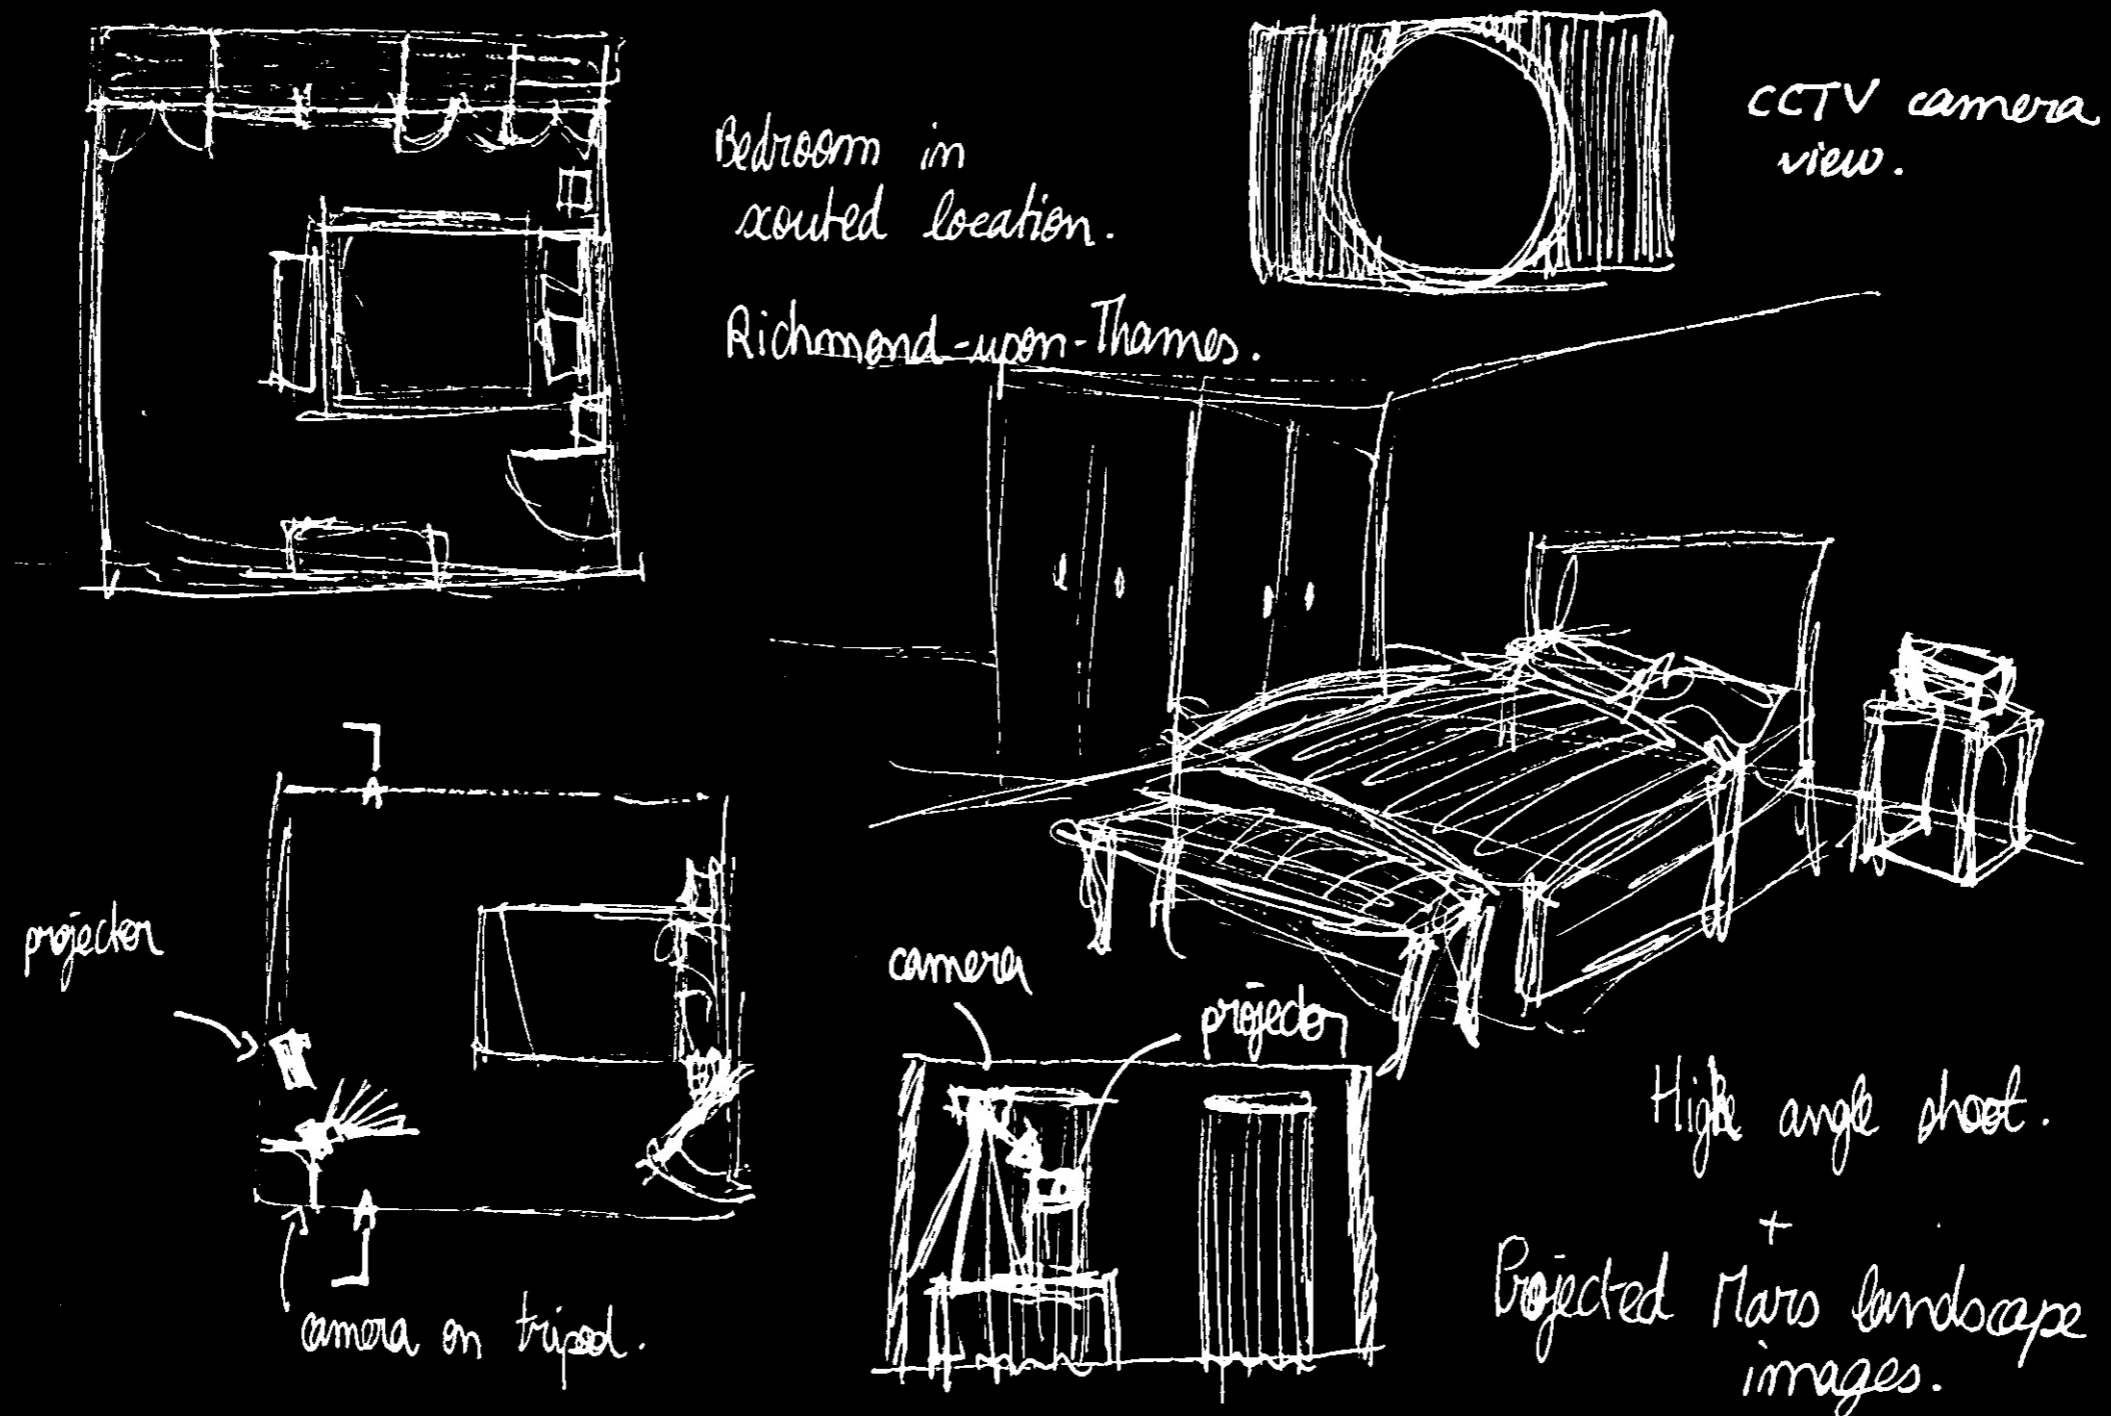 Bedroom in
scouted location.
Richmond-upon-Thames.
CCTV camera
view.
projector
A
A
camera on tripod.
camera
projector
High angle shoot.
+
Projected Mars landscape
images.